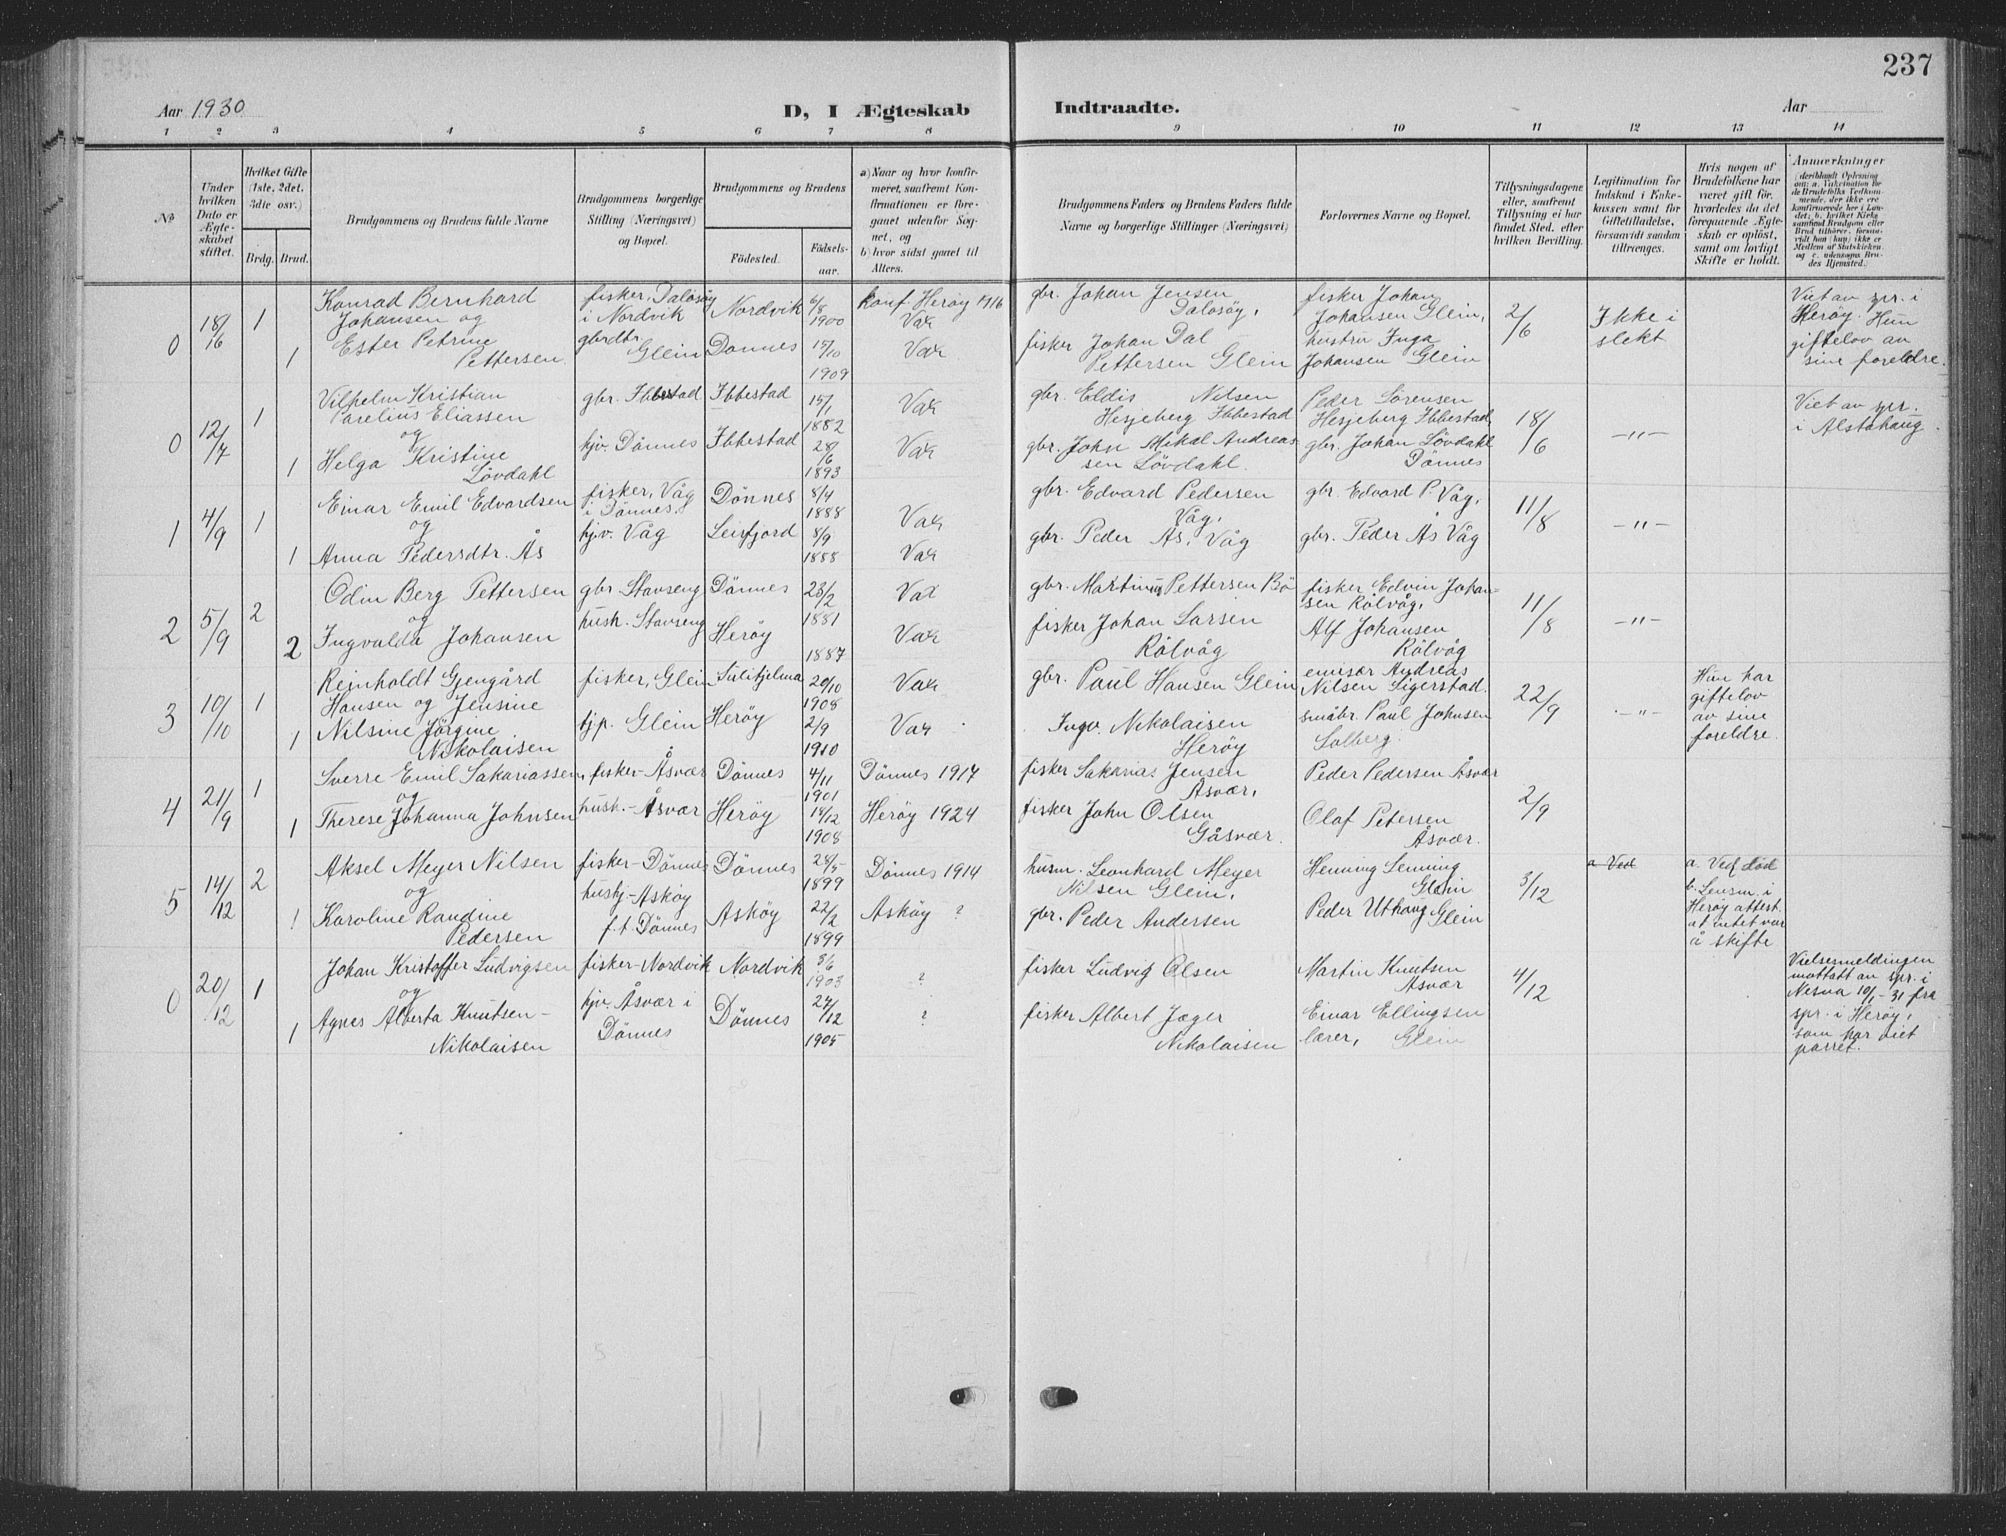 237
Aar 1930. D, I Ægteskab Indtraadte. Aar
1 2 3 4 5 6 7 8 9 10 11 12 13 14
№
Under hvilken Dato er Ægteskabet stiftet.
Hvilket Gifte (1ste, 2det. 3die osv.)
Brdg. Brud.
Brudgommens og Brudens fulde Navne
Brudgommens borgerlige Stilling (Næringsvei) og Bopæl.
Brudgommens og Brudens
Födested.
Födselsaar.
a) Naar og hvor konfirmeret, saafremt Konfirmationen er foreganet udenfor Sognet, og
b) hvor sidst gaaet til Alters.
Brudgommens Faders og Brudens Faders fulde Navne og borgerlige Stillinger (Næringsvei)
Forlovernes Navne og Bopæl.
Tillysningsdagene eller, saafremt Tillysning ei har fundet Sted. efter hvilken Bevilling.
Legitimation for Indskud i Enkekassen samt for Giftetilladelse, forsaavidt saadan tiltrænges.
Hvis nogen af Brudefolkene har været gift för, hvorledes da det foregaaende Ægteskab er oplöst, samt om lovligt Skifte er holdt.
Anmærkninger
0 18/6 1 Konrad Bernhard Johansen og fisker, Dalosöy i Nordvik Nordvik 6/8 1900 konf Heröy 1916 Vax gbr. Johan Jensen Dalosöy, fisker Johan Johansen Glein, 2/6 Ikke i slekt Viet av spr. i Heröy. Hun giftelov av sine foreldre.
1 Ester Petrine Pettersen gbrdtr. Glein Dönnes 15/10 1909 Vax fisker Johan Dal Pettersen Glein hustru Inga Johansen Glein
0 12/7 1 Vilhelm Kristian Parelius Eliassen og gbr. Ibbestad Ibbestad 15/1 1882 Vax gbr. Eldis Nilsen Hesjeberg Ibbestad Peder Sörensen Hesjeberg Ibbestad, 18/6 -"- Viet av spr. i Alstahaug.
1 Helga Kristine Lövdahl hjv. Dönnes Ibbestad 28/6 1893 Vax gbr. Johan Mikal Andreassen Lövdahl. gbr. Johan Lövdahl Dönnes
1 4/9 1 Einar Emil Edvardsen og fisker, Våg i Dönnes. Dönnes 8/4 1888 Vax gbr. Edvard Pedersen Våg, gbr. Edvard P. Våg, 11/8 -"-
1 Anna Pedersdtr. Ås hjv. Våg Leirfjord 8/9 1888 Vax gbr. Peder Ås, Våg gbr. Peder Ås Våg
2 5/9 2 Odin Berg Pettersen og gbr. Stavseng Dönnes 23/2 1881 Vax gbr. Martinus Pettersen Bö fisker Edvin Johansen Rölvåg, 11/8 -"-
2 Ingvalda Johansen hush. Stavseng Heröy 1887 Vax fisker Johan Larsen Rölvåg Alf Johansen Rölvåg
3 10/10 1 Reinholdt Gjengård Hansen og Jensine fisker, Glein Sulitjelma 20/10 1908 Vax gbr. Paul Hansen Glein emisær Andreas Nilsen Sigerstad. 22/9 -"- Hun har giftelov av sine foreldre.
1 Nilsine Jörgine Nikolaisen hjp. Glein Heröy 2/9 1910 Vax Ingv. Nikolaisen Heröy småbr. Paul Johnsen Solberg.
4 21/9 1 Sverre Emil Sakariassen, og fisker - Åsvær Dönnes 4/11 1901 Dönnes 1917 fisker Sakarias Jensen Åsvær, Peder Pedersen Åsvær 2/9
1 Therese Johanna Johnsen hush. - Åsvær Heröy 14/12 1908 Heröy 1924 fisker John Olsen Gåsvær. Olaf Petersen Åsvær.
5 14/12 2 Aksel Meyer Nilsen og fisker - Dönnes Dönnes 28/5 1899 Dönnes 1914 husm. Leonhard Meyer Nilsen Glein, Henning Lenning Glein 3/12 a Ved a. Ved död b. Lensm. i Heröy attest. at intet var å skifte
1 Karoline Randine Pedersen hushj - Askøy f.t. Dönnes Asköy 22/2 1899 Asköy ? gbr. Peder Andersen Peder Uthaug Glein
0 20/12 1 Johan Kristoffer Ludvigsen og fisker - Nordvik Nordvik 3/6 1903 ? fisker Ludvig Olsen Martin Knutsen Åsvær 4/12 Vielsesmeldingen mottatt av spr. i Nesna 10/1-31 fra spr. i Heröy, som har viet parret.
1 Agnes Alberta Knutsen - Nikolaisen hjv. Åsvær i Dönnes Dönnes 27/12 1905 ? fisker Albert Jæger Nikolaisen Einar Ellingsen lærer, Glein